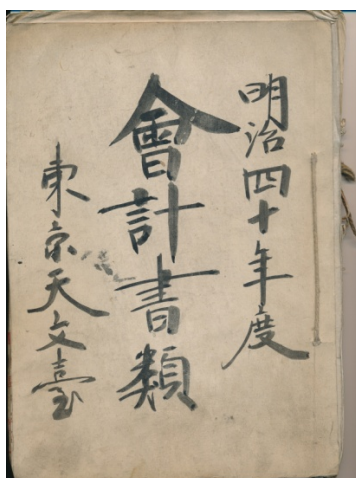 明治四十年度
會計書類
東京天文臺